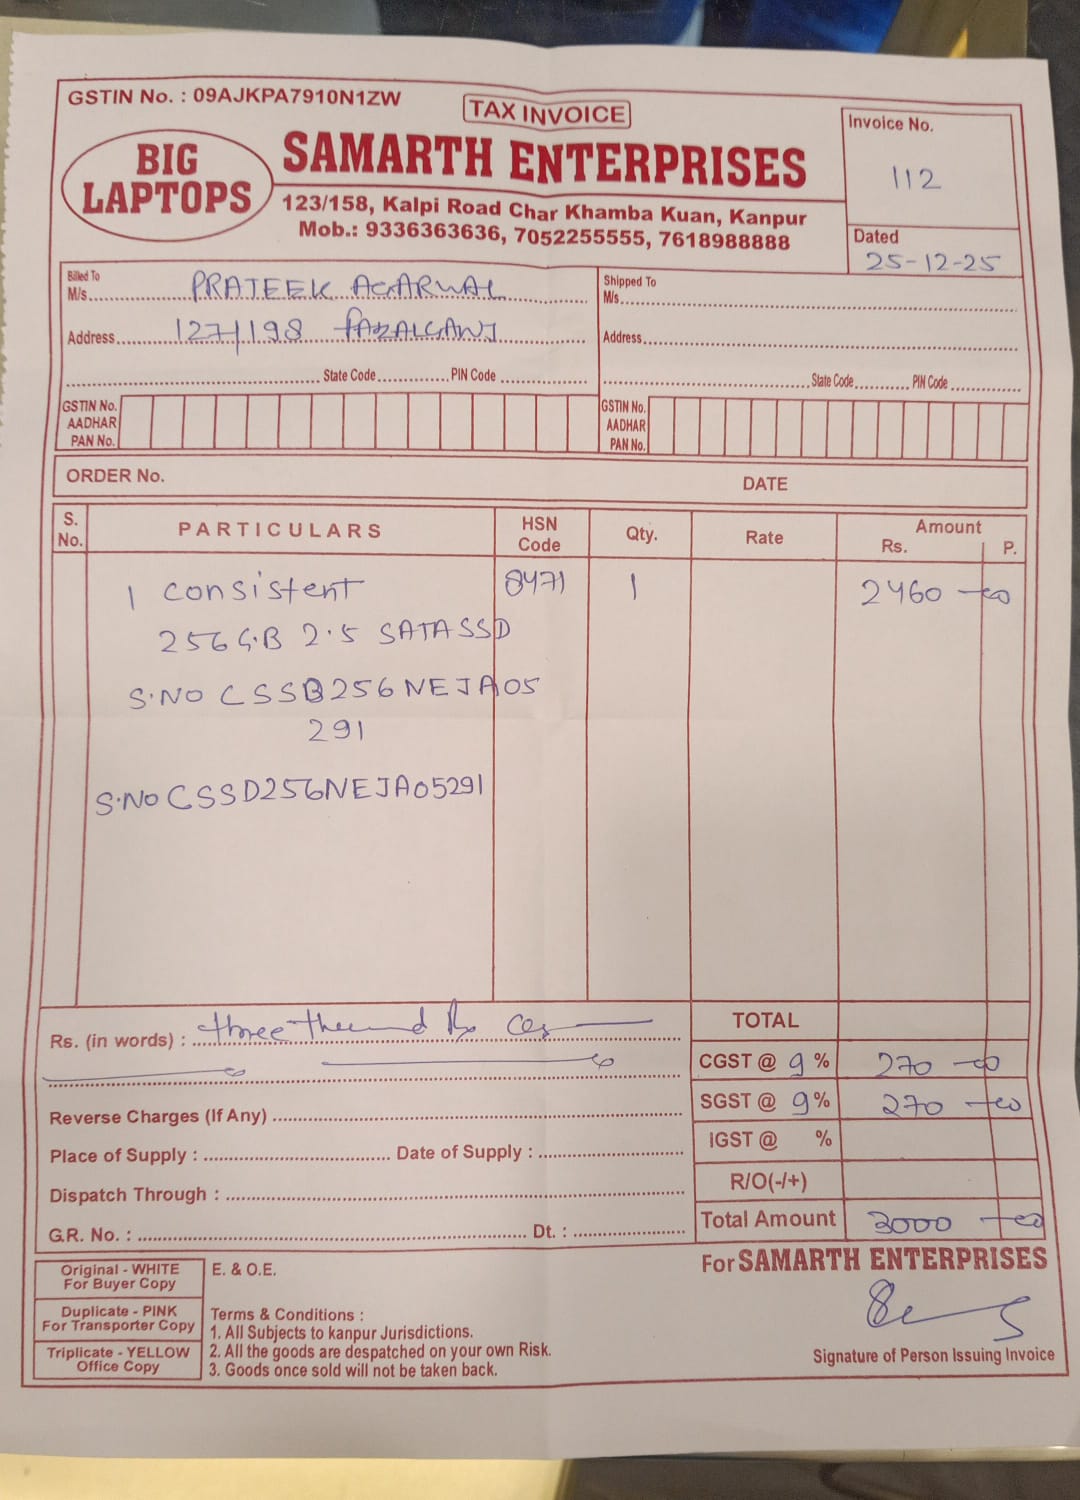 GSTIN No. : 09AJKPA7910N1ZW
TAX INVOICE
BIG
LAPTOPS
SAMARTH ENTERPRISES
123/158, Kalpi Road Char Khamba Kuan, Kanpur
Mob.: 9336363636, 7052255555, 7618988888
Invoice No.
112
Dated
25-12-25
Billed To
M/s. PRATEEK AGARWAL
Address 127/198 FAZALGANJ
State Code PIN Code
GSTIN No.
AADHAR
PAN No.
Shipped To
M/s.
Address
State Code PIN Code
GSTIN No.
AADHAR
PAN No.
ORDER No. DATE
S. No. PARTICULARS HSN Code Qty. Rate Amount Rs. P.
1 Consistent 8471 1 2460
256 G.B 2.5 SATA SSD
S.NO CSSB256NEJA05
291
S.NO CSSD256NEJA05291
Rs. (in words) : three
Reverse Charges (If Any)
Place of Supply : Date of Supply :
Dispatch Through :
G.R. No. : Dt. :
TOTAL
CGST @ 9 % 270
SGST @ 9 % 270
IGST @ %
R/O(-/+)
Total Amount 3000
For SAMARTH ENTERPRISES
Signature of Person Issuing Invoice
Original - WHITE
For Buyer Copy
Duplicate - PINK
For Transporter Copy
Triplicate - YELLOW
Office Copy
E. & O.E.
Terms & Conditions :
1. All Subjects to kanpur Jurisdictions.
2. All the goods are despatched on your own Risk.
3. Goods once sold will not be taken back.